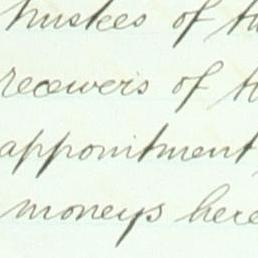 trustees of the
receivers of th
appointment
moneys here